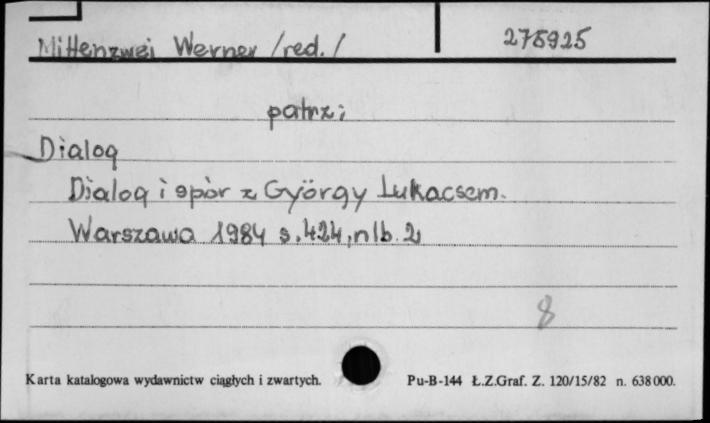 Mittenzwei Werner /red./ 275925
patrz;
Dialog
Dialog i spór z György Lukacsem.
Warszawa 1984 s. 424, nlb. 2
8
Karta katalogowa wydawnictw ciągłych i zwartych. Pu-B-144 Ł.Z.Graf. Z. 120/15/82 n. 638000.